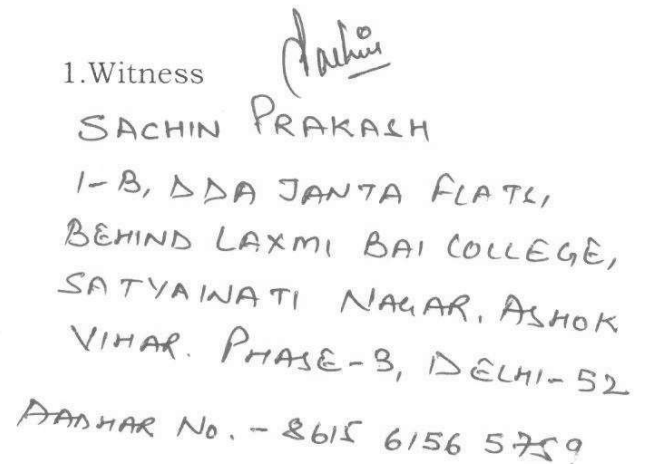 1.Witness Sachin
SACHIN PRAKASH
1-B, DDA JANTA FLATS,
BEHIND LAXMI BAI COLLEGE,
SATYAWATI NAGAR, ASHOK
VIHAR. PHASE-3, DELHI-52
AADHAR No. - 8615 6156 5759